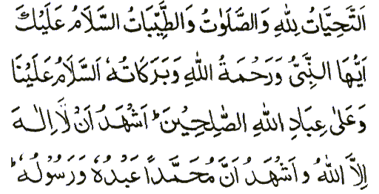 اَلتَّحِيَّاتُ لِلّٰهِ وَالصَّلَوٰتُ وَالطَّيِّبَاتُ اَلسَّلَامُ عَلَيْكَ
اَيُّهَا النَّبِىُّ وَرَحْمَةُ اللّٰهِ وَبَرَكَاتُهٗ اَلسَّلَامُ عَلَيْنَا
وَعَلٰى عِبَادِ اللّٰهِ الصّٰلِحِيْنَ ؕ اَشْهَدُ اَنْ لَّا اِلٰهَ
اِلَّا اللّٰهُ وَ اَشْهَدُ اَنَّ مُحَمَّدًا عَبْدُهٗ وَ رَسُوْلُهٗ ؕ